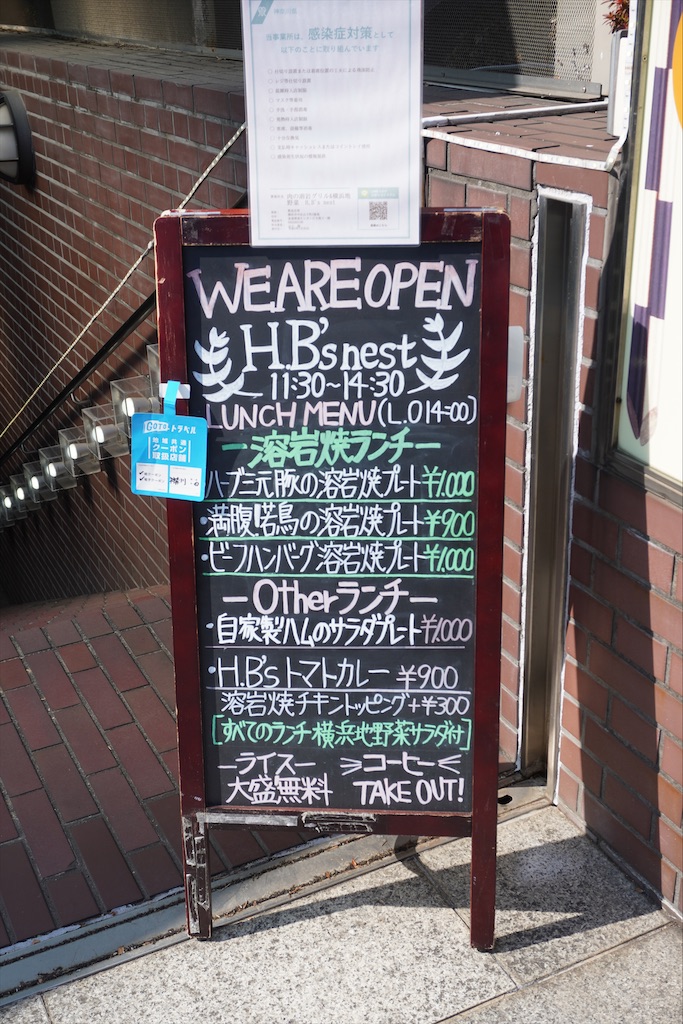 神奈川県
当事業所は、感染症対策として
以下のことに取り組んでいます
WE ARE OPEN
H.B's nest
11:30~14:30
LUNCH MENU (L.O 14:00)
ー溶岩焼ランチー
ハーブ三元豚の溶岩焼プレート ¥1.000
・満腹!若鳥の溶岩焼プレート ¥900
・ビーフハンバーグ溶岩焼プレート ¥1.000
ーOtherランチー
・自家製ハムのサラダプレート ¥1.000
・H.B'sトマトカレー ¥900
溶岩焼チキントッピング+¥300
[すべてのランチ横浜地野菜サラダ付]
ーライスー
大盛無料
コーヒー
TAKE OUT!
GoTo トラベル
地域共通
クーポン
取扱店舗